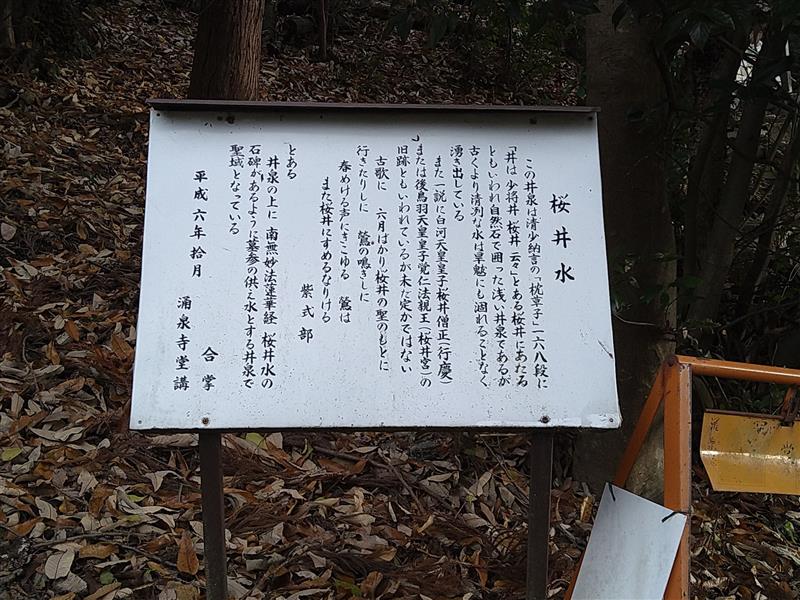 桜井水
この井泉は清少納言の「枕草子」一六八段に
「井は 少将井 桜井 云々」とある桜井にあたる
ともいわれ自然石で囲った浅い井泉であるが
古くより清冽な水は旱魃にも涸れることなく
湧き出している
また一説に白河天皇皇子桜井僧正(行慶)
または後鳥羽天皇皇子覚仁法親王(桜井宮)の
旧跡ともいわれているが未だ定かではない
古歌に 六月ばかり桜井の聖のもとに
行きたりしに 鶯の鳴きしに
春めける声にきこゆる 鶯は
また桜井にすめるなりける
紫式部
とある
井泉の上に 南無妙法蓮華経 桜井水の
石碑があるように墓参の供え水とする井泉で
聖域となっている
平成六年拾月 涌泉寺堂講
合掌